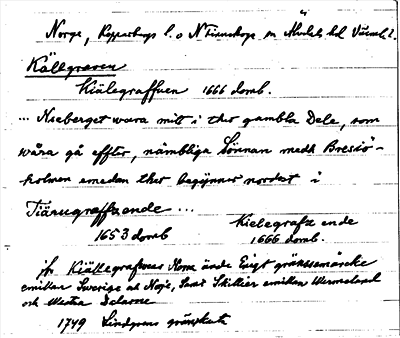 Norge, Kopparbergs l. o N Finnskoga sn Älvdals hd Värml.
Källgraven
Kiälegraffuen 1666 domb.
... Naeberget wara mitt i ther gambla Dele, som
wåra gå effter, nämbliga Sönnan medh Bresiö-
holmen emedan ther begynner nordast i
Tiärugraffzende ...
1653 domb
Kielegrafz ende
1666 domb.
jfr Kiällegrafwens Norra ände Ewigt gränssemärcke
emillan Swerige och Norje, samt Skillier emillan Wermeland
och Westra Dalarne
1749 Lindgrens gränskarta